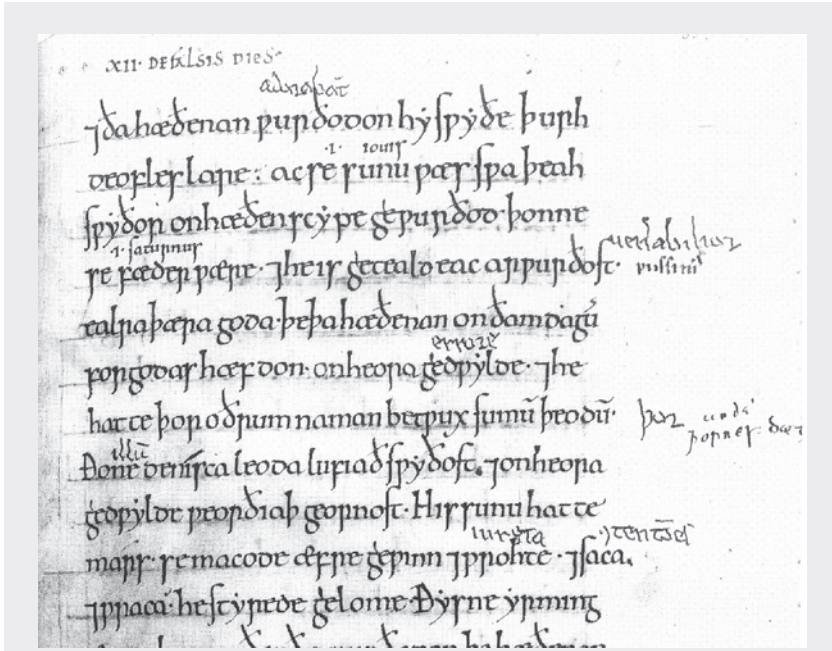 XII· DE FALSIS DIES·
⁊ða hæðenan ƿurðodon hẏ sƿẏðe þurh
·i· iouis
deofles lare: ac se sunu ƿæs sƿa þeah
sƿẏðor on hæðenscẏpe geƿurðod· þonne
·i· saturnus
se fæder ƿære· ⁊he is geteald eac arƿurðost·
ealra þæra goda· þe þa hæðenan on ðam dagū
errorē
for godas hæfdon· on heora gedƿẏlde· ⁊he
hatte þor oðrum naman betƿux sumū þeodū· þor
illū
Ðone denisca leoda lufiað sƿẏðost. ⁊on heora
gedƿẏlde ƿeorðiaþ geornost· His sunu hatte
iurgia
mars· se macode æfre geƿinn ⁊ƿrohte· ⁊saca.
⁊ƿraca· he stẏrede gelome· Ðẏsne ẏrming